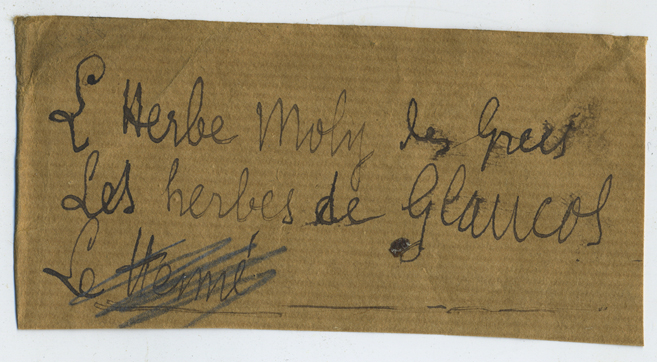 L'Herbe Moly des Grecs
Les herbes de Glaucos
Le Hermé